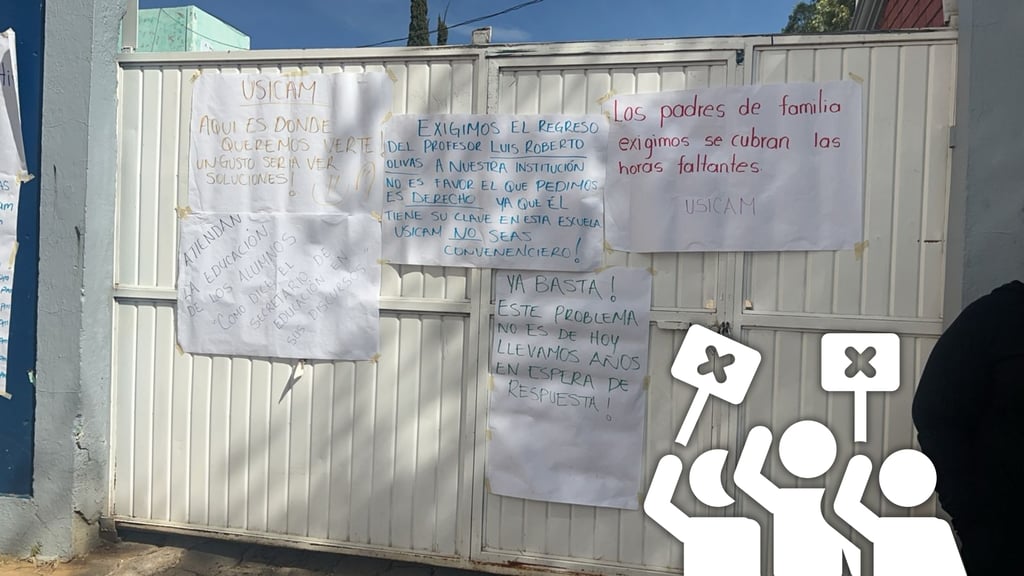 USICAM
AQUI ES DONDE
QUEREMOS VERTE!
UN GUSTO SERIA VER
SOLUCIONES!
ATIENDAN
LA EDUCACIÓN
DE LOS ALUMNOS
"COMO DICE EL
SECRETARIO DE
EDUCACIÓN EN
SUS DISCURSOS"
EXIGIMOS EL REGRESO
DEL PROFESOR LUIS ROBERTO
OLIVAS A NUESTRA INSTITUCIÓN
NO ES FAVOR EL QUE PEDIMOS
ES DERECHO YA QUE ÉL
TIENE SU CLAVE EN ESTA ESCUELA
USICAM NO SEAS
CONVENENCIERO!
Los padres de familia
exigimos se cubran las
horas faltantes.
USICAM
YA BASTA!
ESTE PROBLEMA
NO ES DE HOY
LLEVAMOS AÑOS
EN ESPERA DE
RESPUESTA!